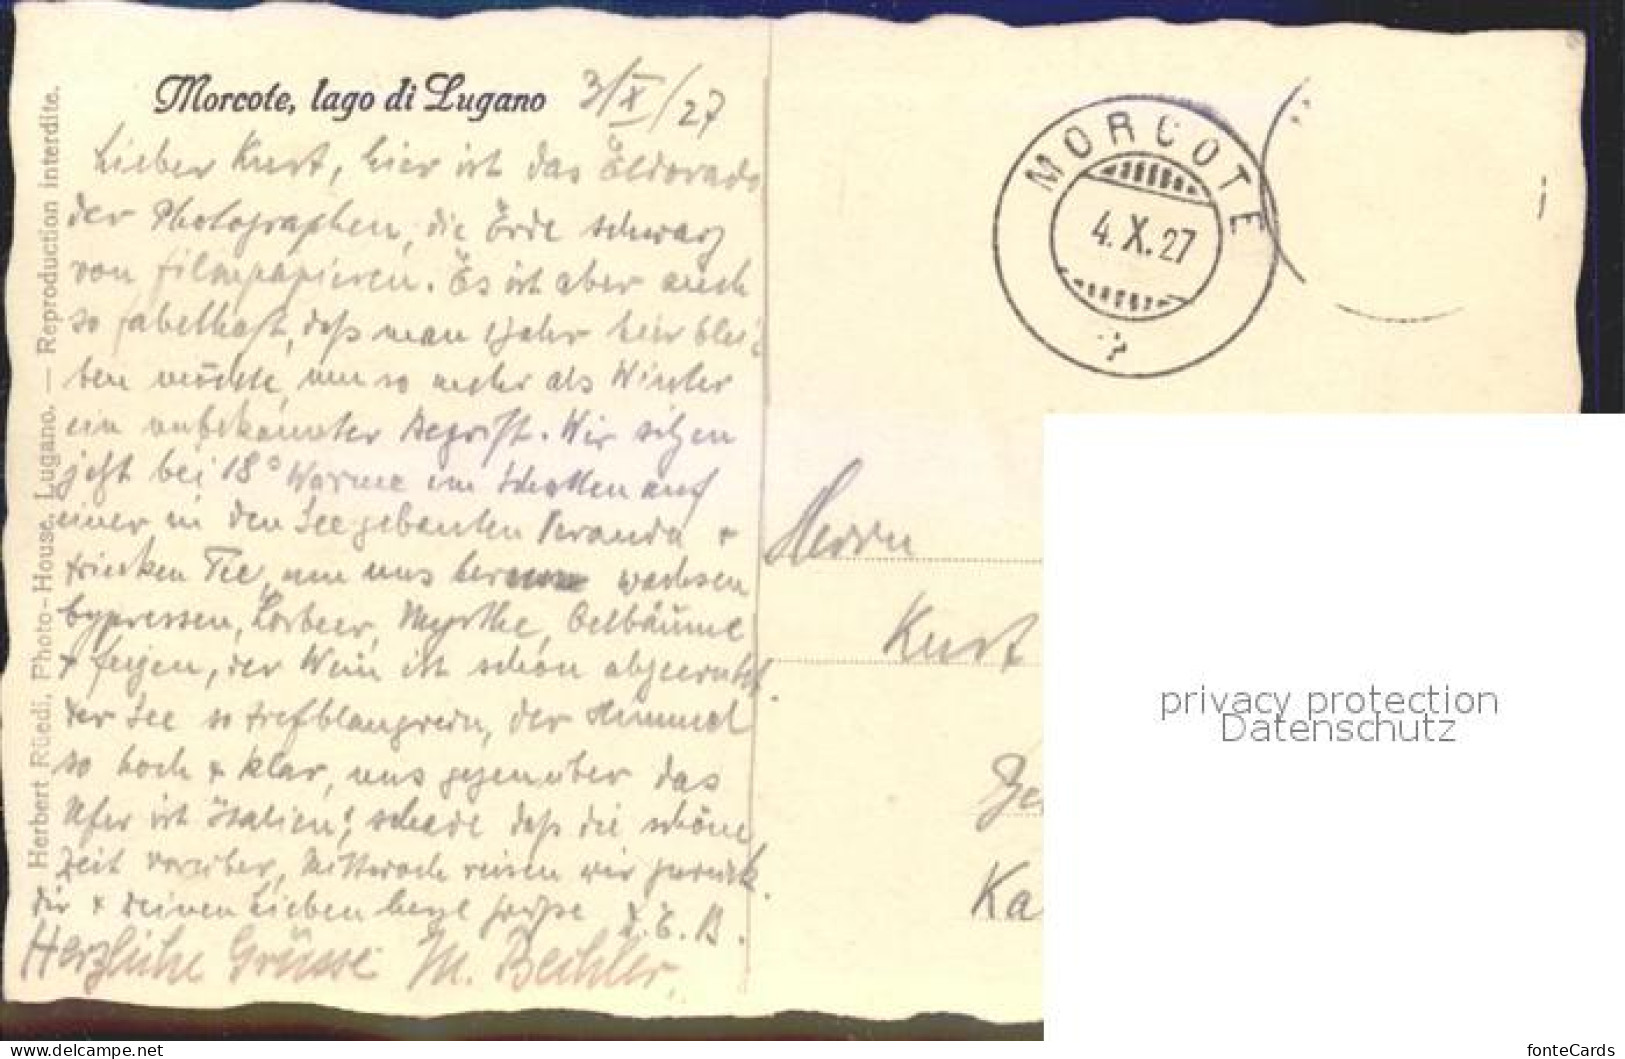 Morcote, lago di Lugano 3/X/27
Lieber Kurt, hier ist das Eldorado
der Photographen, die Erde schwarz
von Filmpapieren. Es ist aber auch
so fabelhaft, daß man 1 Jahr hier blei-
ben möchte, um so mehr als Winter
ein unbekannter Begriff. Wir sitzen
jetzt bei 18° Wärme im Schatten auf
einer in den See gebauten Veranda +
trinken Tee, um uns herum wachsen
Cypressen, Lorbeer, Myrthe, Oelbäume
+ Feigen, der Wein ist schon abgeerntet.
Der See so tiefblau, der Himmel
so hoch + klar, uns gegenüber das
Ufer ist Italien! schade daß die schöne
Zeit vorüber, Mittwoch reisen wir zurück.
Dir + deinen Lieben herzl Grüße E. B.
Herzliche Grüsse M. Bechler.
Herbert Rüedi, Photo-House, Lugano. — Reproduction interdite.
MORCOTE
4.X.27
Herrn
Kurt
Ka
privacy protection
Datenschutz
www.delcampe.net
fonteCards